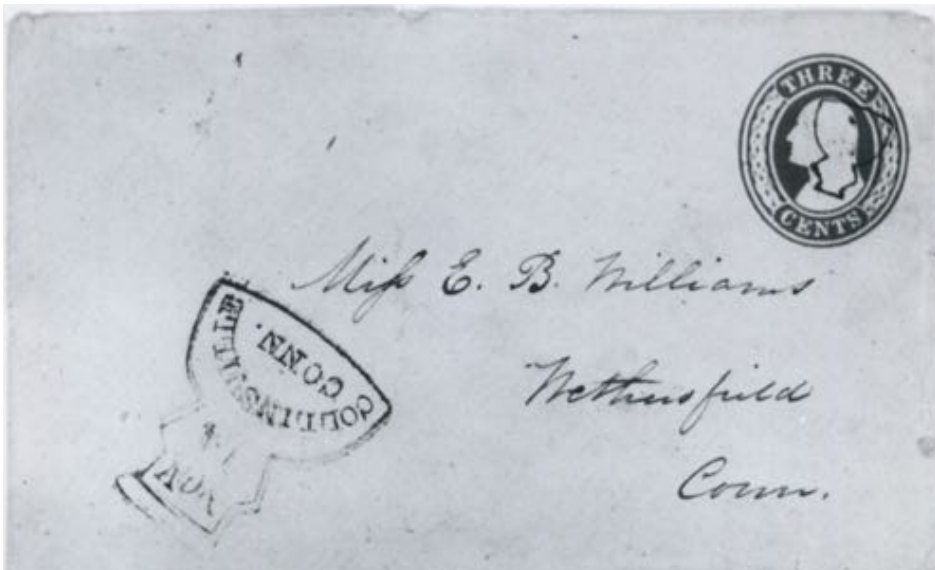 THREE
CENTS
Miss E. B. Williams
Wethersfield
Conn.
COLLINSVILLE
CONN.